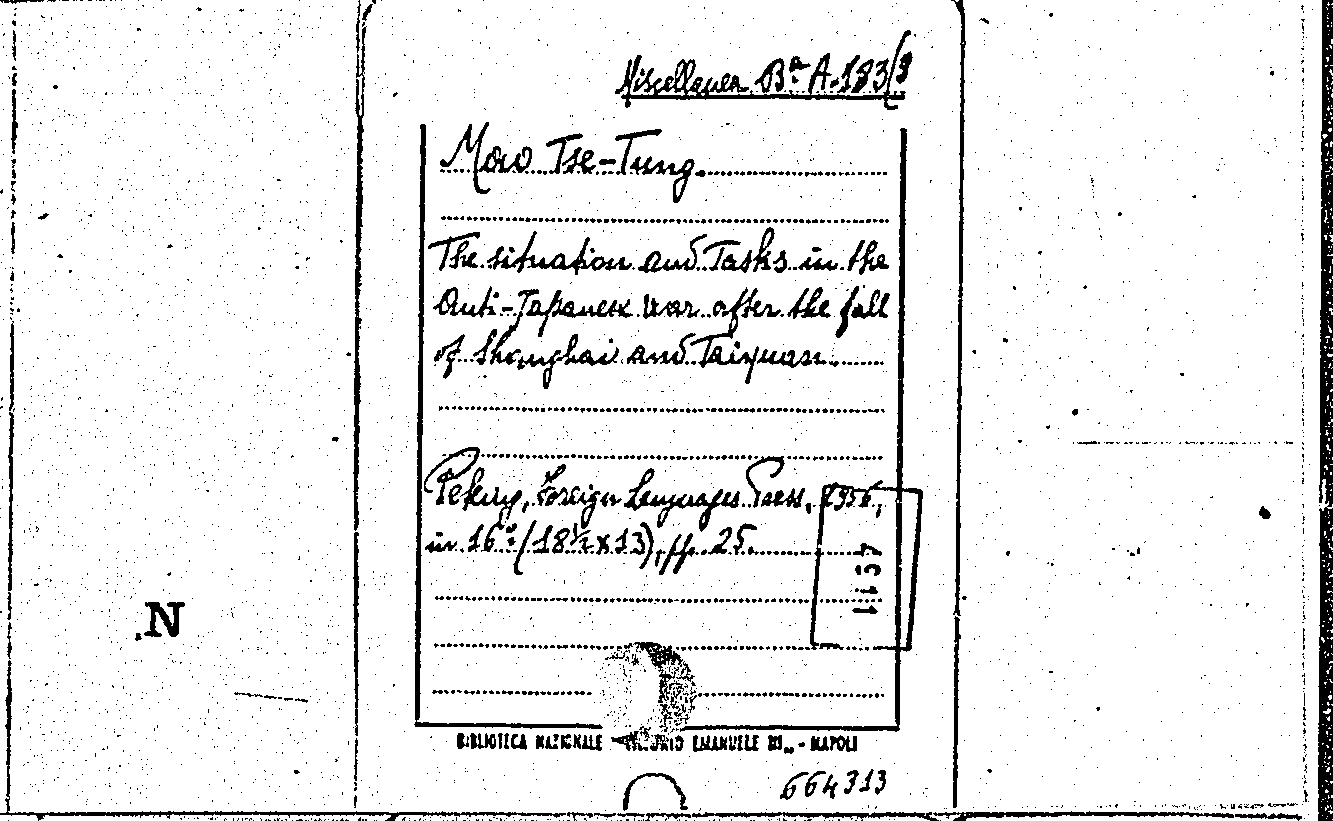 Miscellanea Bª A.183/9
Mao Tse-Tung.
The situation and Tasks in the
Anti-Japanese War after the fall
of Shanghai and Taiyuan.
Peking, Foreign Languages Press, 1956,
in 16º (18½x13), pp. 25.
1157
N
BIBLIOTECA NAZIONALE VITTORIO EMANUELE III - NAPOLI
664313